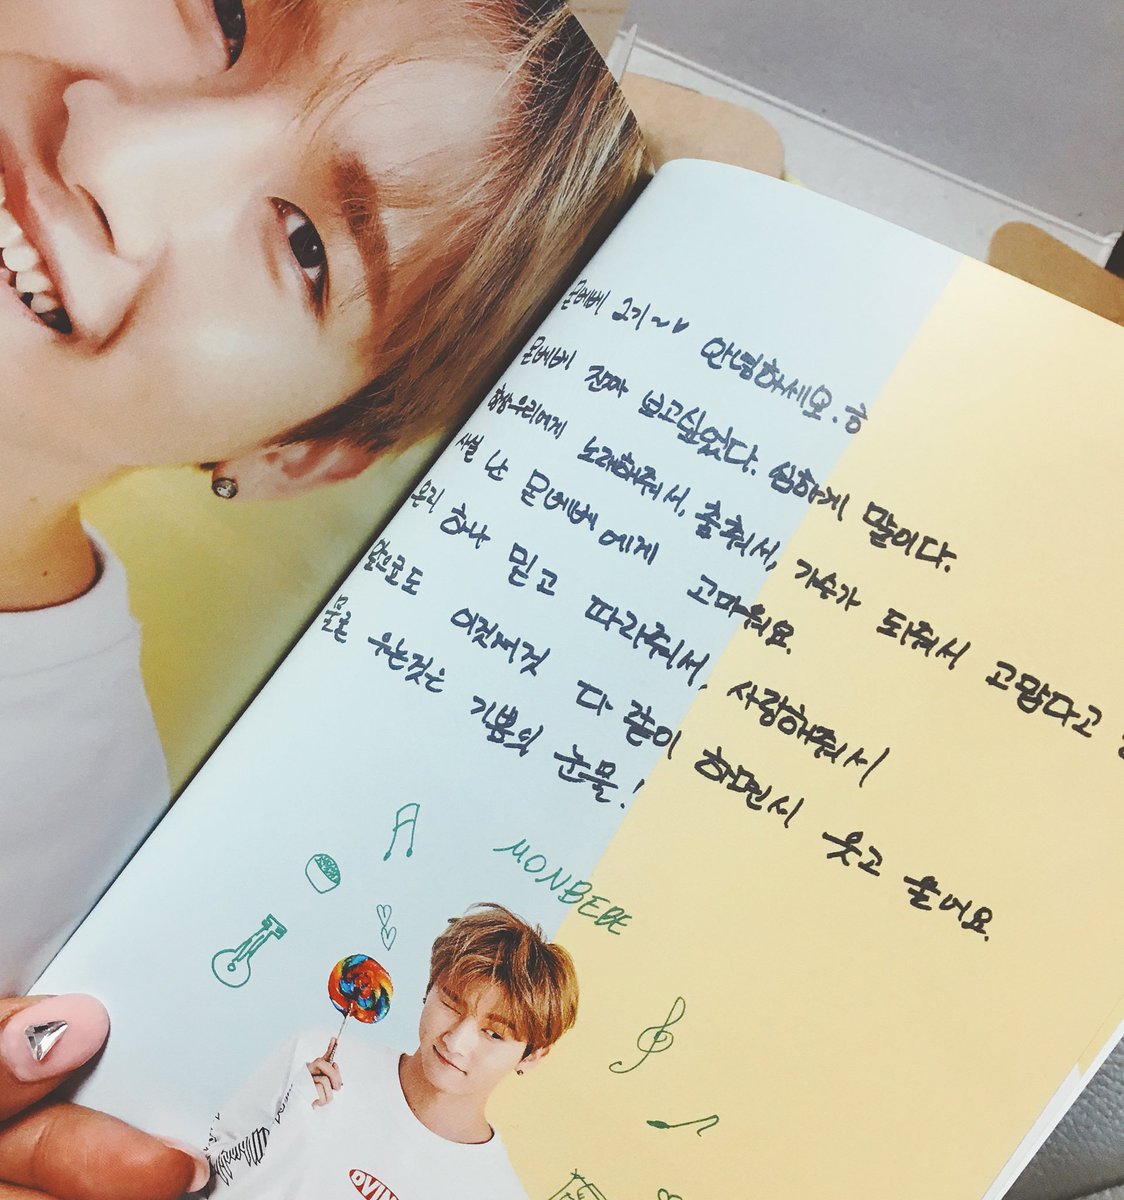 몬베베 2기~♥ 안녕하세요.ㅎ
몬베베 진짜 보고싶었다. 심하게 말이다.
항상 우리에게 노래해줘서, 춤춰서, 가수가 되줘서 고맙다고
사실 난 몬베베에게 고마워요.
우리 하나 믿고 따라줘서, 사랑해줘서
앞으로도 이것저것 다 같이 하면서 웃고 울어요.
물론 우는것은 기쁨의 눈물!
MONBEBE